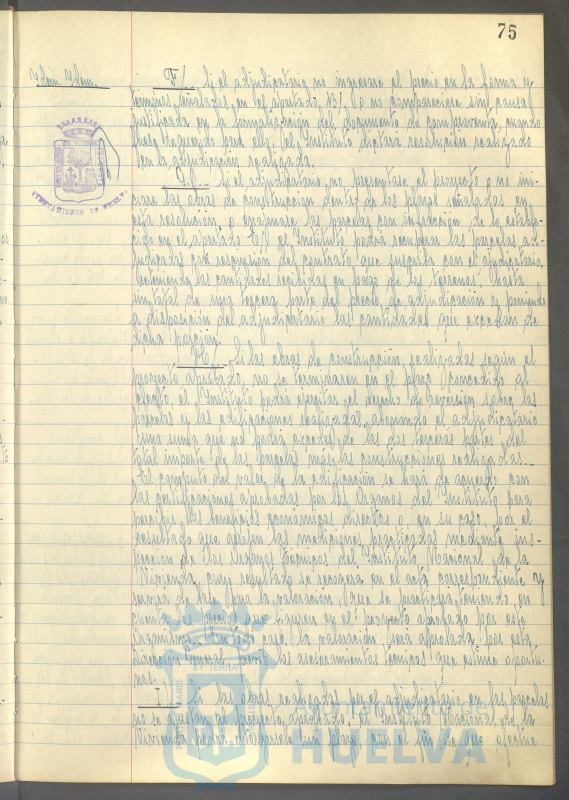 75
Idem. Idem.
F/. Si el adjudicatario no ingresare el precio en la forma y
términos señalados en el apartado B/. o no compareciere sin causa
justificada en la formalización del documento de compraventa, cuando
fuere requerido para ello, el Instituto dictará resolución
con la adjudicación realizada.
G/. Si el adjudicatario no presentase el proyecto o no ini-
ciare las obras de construcción dentro de los plazos señalados en
esta resolución, o enajenare las parcelas con infracción de lo estable-
cido en el apartado C/ el Instituto podrá recuperar las parcelas ad-
judicadas con rescisión del contrato que suscriba con el adjudicatario,
reteniendo las cantidades recibidas en pago de los terrenos, hasta
un total de una tercera parte del precio de adjudicación y poniendo
a disposición del adjudicatario las cantidades que excedan de
dicha porción.
H/. Si las obras de construcción realizadas según el
proyecto aprobado, no se terminaren en el plazo concedido al
efecto, el Instituto podrá ejercitar el derecho de reversión sobre las
parcelas y las edificaciones realizadas, abonando al adjudicatario
una suma que no podrá exceder de las dos terceras partes del
total importe de las parcelas más las construcciones realizadas.-
El computo del valor de la edificación se hará de acuerdo con
las certificaciones aprobadas por los Organos del Instituto para
percibir los beneficios económicos directos o en su caso, por el
resultado que arrojen las mediciones practicadas mediante ins-
pección de los Organos Técnicos del Instituto Nacional de la
Vivienda, cuyo resultado se recogerá en el acta correspondiente y
servirá de base para la valoración, que se practicará teniendo en
cuenta los precios que figuren en el proyecto aprobado por este
Organismo. En todo caso, la valoración será aprobada por esta
Dirección General, con los asesoramientos técnicos que estime oportu-
nos.
I/. Si las obras realizadas por el adjudicatario en las parcelas
no se ajustan al proyecto aprobado, el Instituto Nacional de la
Vivienda podrá otorgarle un plazo, con el fin de que efectúe
AYUNTAMIENTO DE HUELVA
Ayuntamiento de
HUELVA